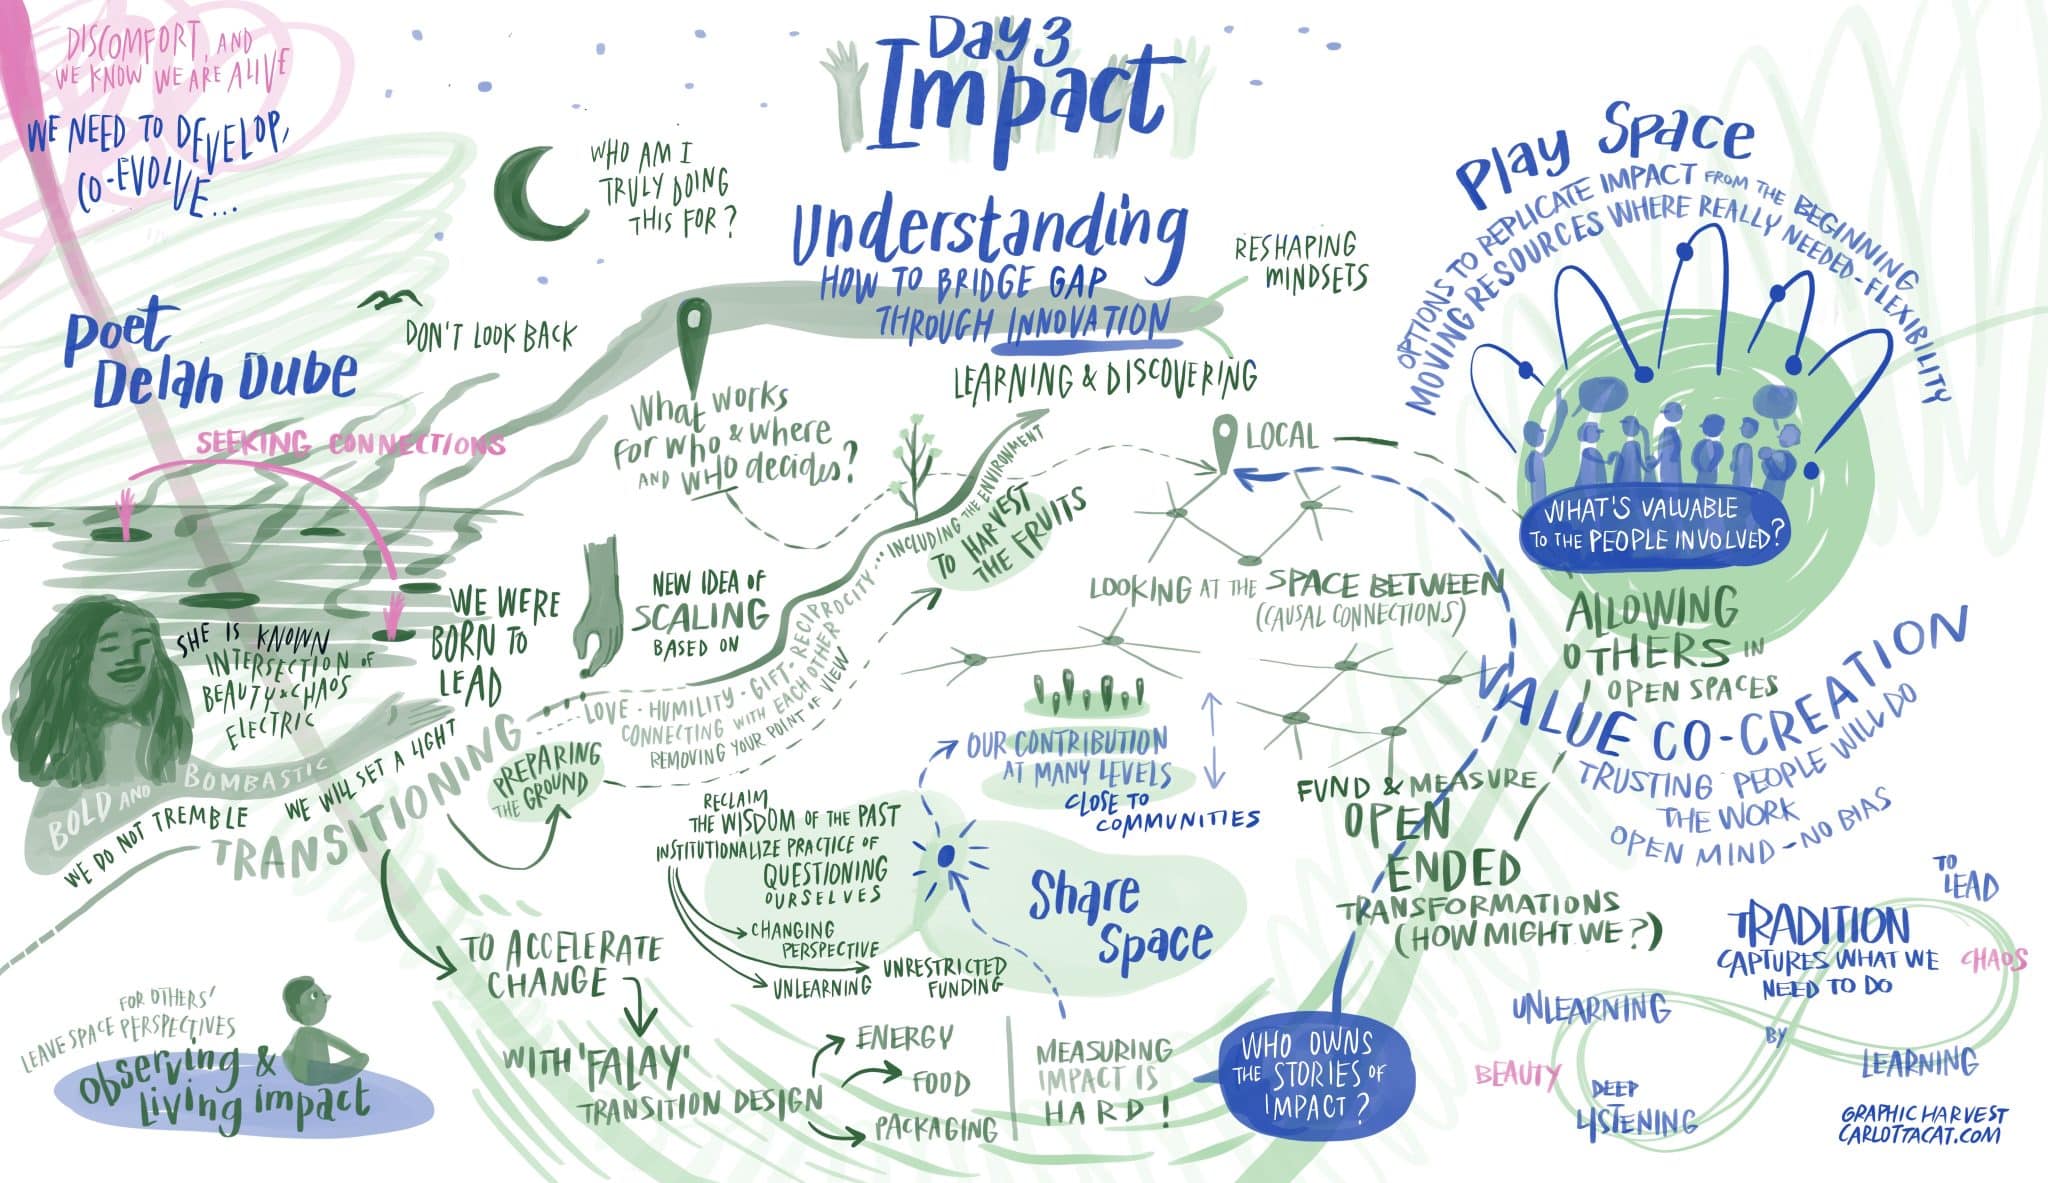 Day 3
Impact
DISCOMFORT, AND
WE KNOW WE ARE ALIVE
WE NEED TO DEVELOP,
CO-EVOLVE...
WHO AM I
TRULY DOING
THIS FOR?
Understanding
HOW TO BRIDGE GAP
THROUGH INNOVATION
RESHAPING
MINDSETS
LEARNING & DISCOVERING
Poet
Delah Dube
DON'T LOOK BACK
SEEKING CONNECTIONS
What works
for who & where
AND WHO decides?
SHE IS KNOWN
INTERSECTION OF
BEAUTY & CHAOS
ELECTRIC
WE WERE
BORN TO
LEAD
BOLD AND BOMBASTIC
WE DO NOT TREMBLE
WE WILL SET A LIGHT
TRANSITIONING
PREPARING
THE GROUND
NEW IDEA OF
SCALING
BASED ON
LOVE - HUMILITY - GIFT - RECIPROCITY... INCLUDING THE ENVIRONMENT
CONNECTING WITH EACH OTHER
REMOVING YOUR POINT OF VIEW
TO HARVEST
THE FRUITS
LOCAL
LOOKING AT THE SPACE BETWEEN
(CAUSAL CONNECTIONS)
Play Space
OPTIONS TO REPLICATE IMPACT FROM THE BEGINNING
MOVING RESOURCES WHERE REALLY NEEDED - FLEXIBILITY
WHAT'S VALUABLE
TO THE PEOPLE INVOLVED?
ALLOWING
OTHERS IN
OPEN SPACES
VALUE CO-CREATION
TRUSTING PEOPLE WILL DO
THE WORK
OPEN MIND - NO BIAS
OUR CONTRIBUTION
AT MANY LEVELS
CLOSE TO
COMMUNITIES
FUND & MEASURE
OPEN
ENDED
TRANSFORMATIONS
(HOW MIGHT WE?)
RECLAIM
THE WISDOM OF THE PAST
INSTITUTIONALIZE PRACTICE OF
QUESTIONING
OURSELVES
CHANGING
PERSPECTIVE
UNLEARNING
UNRESTRICTED
FUNDING
Share
Space
TO ACCELERATE
CHANGE
WITH 'FALAY'
TRANSITION DESIGN
ENERGY
FOOD
PACKAGING
MEASURING
IMPACT IS
HARD!
WHO OWNS
THE STORIES OF
IMPACT?
FOR OTHERS'
LEAVE SPACE PERSPECTIVES
observing &
living impact
TO
LEAD
TRADITION
CAPTURES WHAT WE
NEED TO DO
CHAOS
UNLEARNING
BY
BEAUTY
DEEP
LISTENING
LEARNING
GRAPHIC HARVEST
CARLOTTACAT.COM